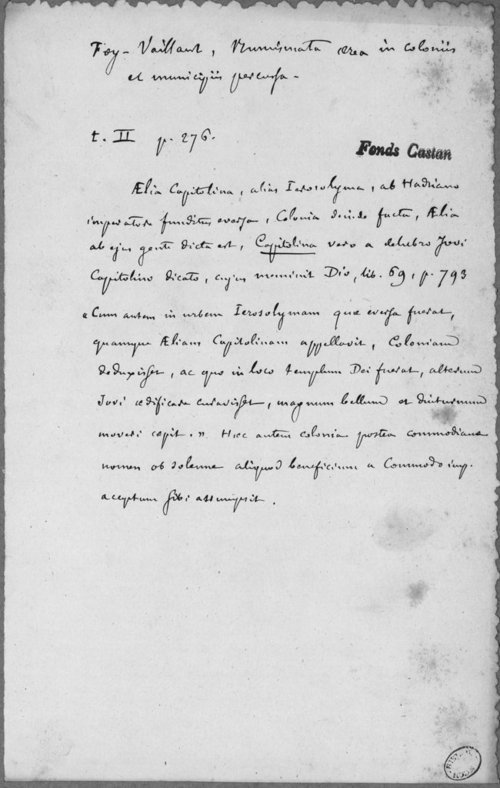 Foy-Vaillant, Numismata ærea in coloniis
et municipiis percussa -
t. II p. 276.
Fonds Castan
Ælia Capitolina, alias Ierosolyma, ab Hadriano
imperatore funditus eversa, Colonia deinde facta, Ælia
ab ejus gente dicta est, Capitolina vero a delubro Jovi
Capitolino dicato, cujus meminit Dio, lib. 69, p. 793
« Cum autem in urbem Ierosolymam quæ eversa fuerat,
quamque Æliam Capitolinam appellavit, Coloniam
deduxisset, ac quo in loco templum Dei fuerat, alterum
Jovi ædificare curavisset, magnum bellum et diuturnum
moveri cœpit. » Hæc autem colonia postea commodiana
nomen ob solenne aliquod beneficium a Commodo imp.
acceptum sibi assumpsit.